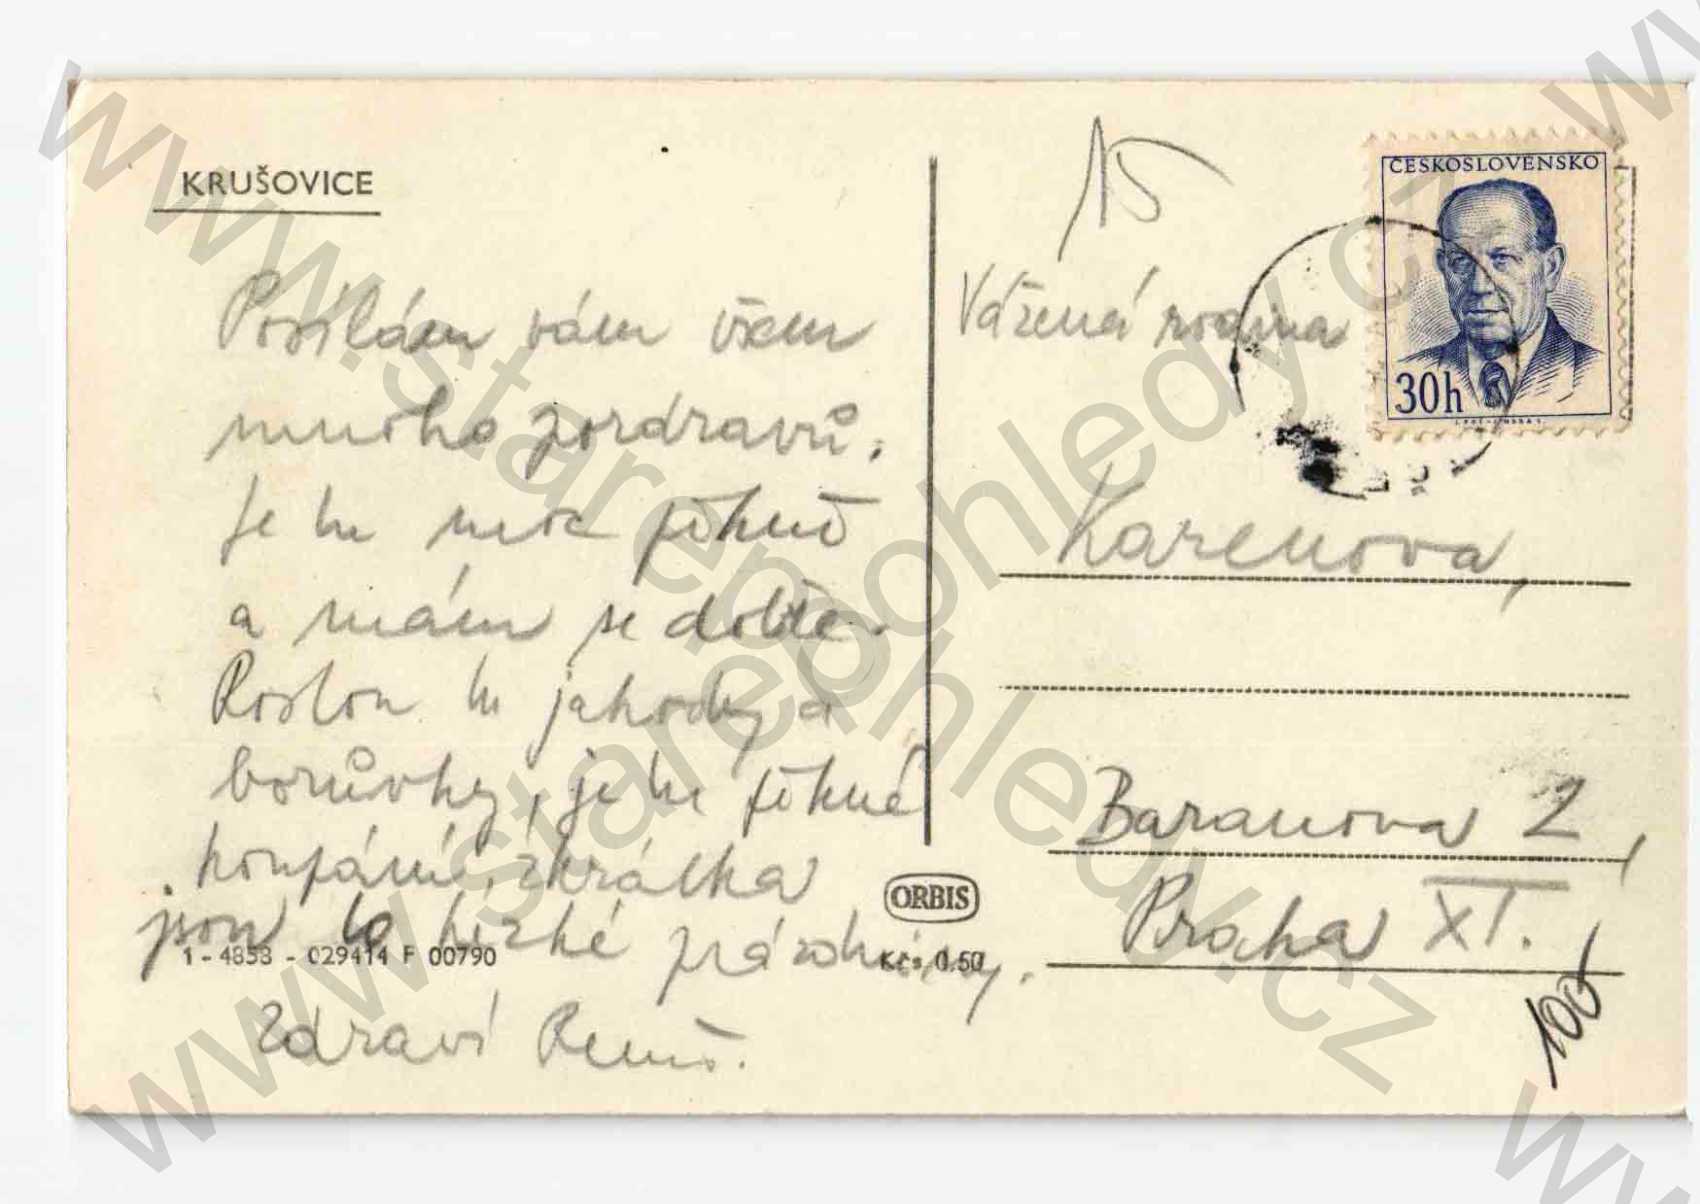 KRUŠOVICE
Posílám vám všem
mnoho pozdravů.
Je tu moc pěkně
a mám se dobře.
Rostou tu jahody a
borůvky, je tu pěkné
koupání, zkrátka
jsou to hezké prázdniny.
1 - 4858 - 029414 F 00790
Zdraví
ORBIS
Kčs 0.50
15
ČESKOSLOVENSKO
30h
Vážená rodina
Karenova,
Baranova 2,
Praha XI.
100
www.starepohledy.cz
www.starepohledy.cz